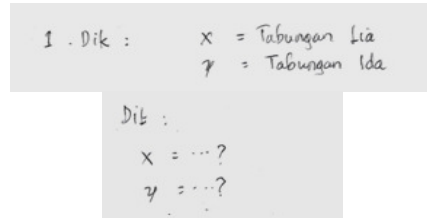 1. Dik : x = Tabungan Lia
y = Tabungan Ida
Dit :
x = ...?
y = ...?